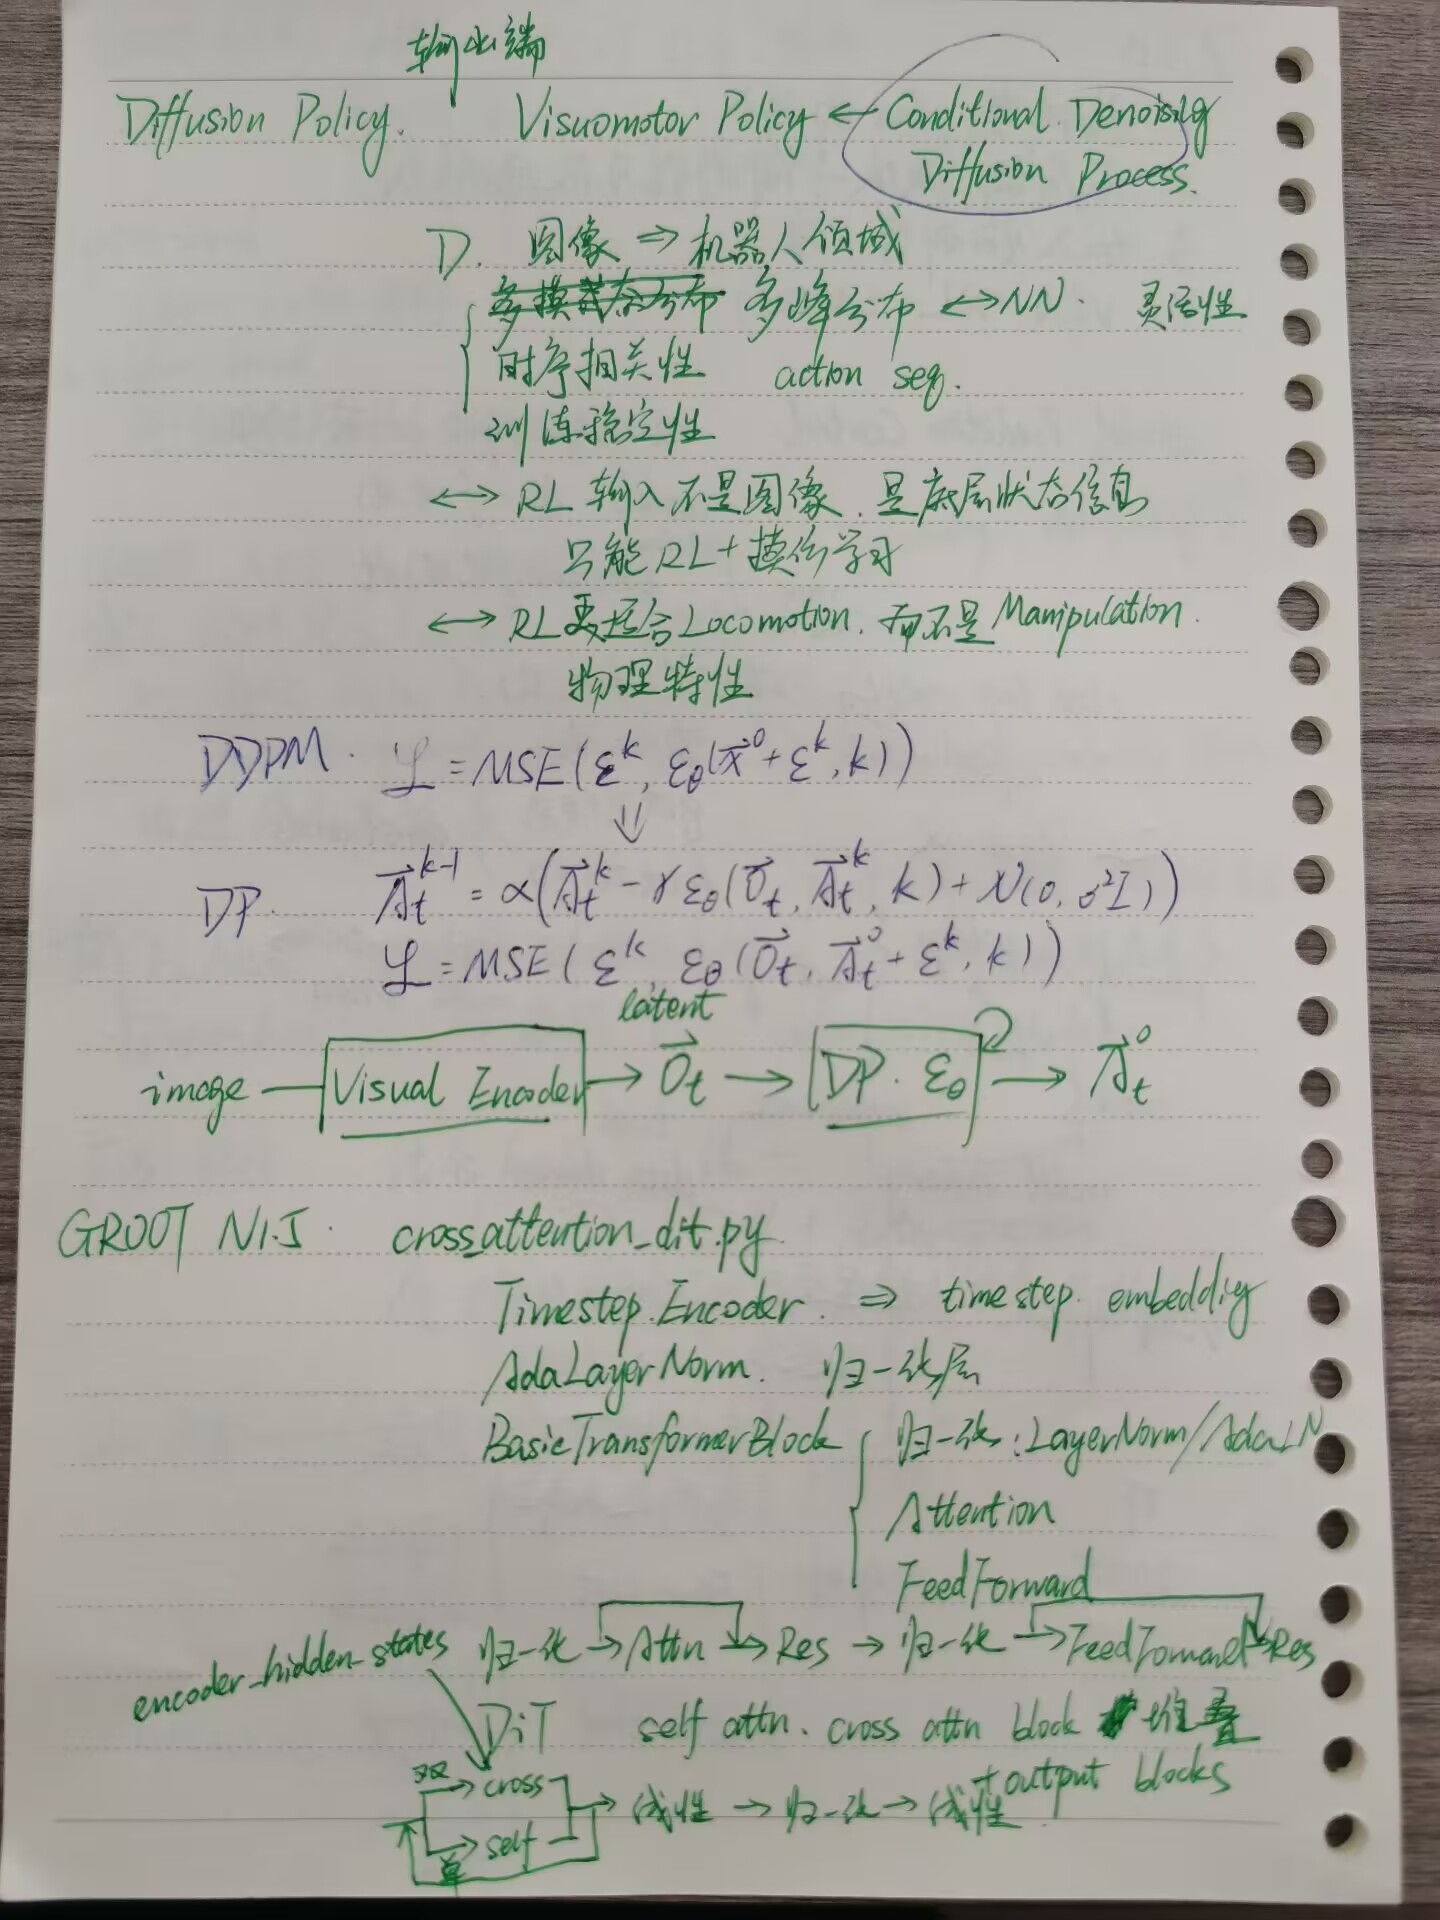 输出端
Diffusion Policy. Visuomotor Policy ← Conditional Denoising
Diffusion Process.
D. 图像 ⇒ 机器人领域
多模态分布 多峰分布 ↔ NN. 灵活性
时序相关性 action seq.
训练稳定性
↔ RL 输入不是图像. 是底层状态信息
只能RL+模仿学习
↔ RL更适合Locomotion. 而不是Manipulation.
物理特性
DDPM. ℒ = MSE(ε^k, ε_θ(x⃗^0 + ε^k, k))
⇓
DP. A⃗_t^{k-1} = α(A⃗_t^k - γ ε_θ(O⃗_t, A⃗_t^k, k) + N(0, σ²I))
ℒ = MSE(ε^k, ε_θ(O⃗_t, A⃗_t^0 + ε^k, k))
latent
image — Visual Encoder → O⃗_t → DP. ε_θ → A⃗_t^0
GR00T N1.5. cross_attention_dit.py
Timestep.Encoder. ⇒ timestep. embeddig
AdaLayerNorm. 归一化层
BasicTransformerBlock { 归一化:LayerNorm/AdaLN
Attention
FeedForward
encoder_hidden_states 归一化 → Attn → Res → 归一化 → FeedForward → Res
DiT self attn. cross attn block 堆叠
+ output blocks
双 → cross → 线性 → 归一化 → 线性.
单 → self